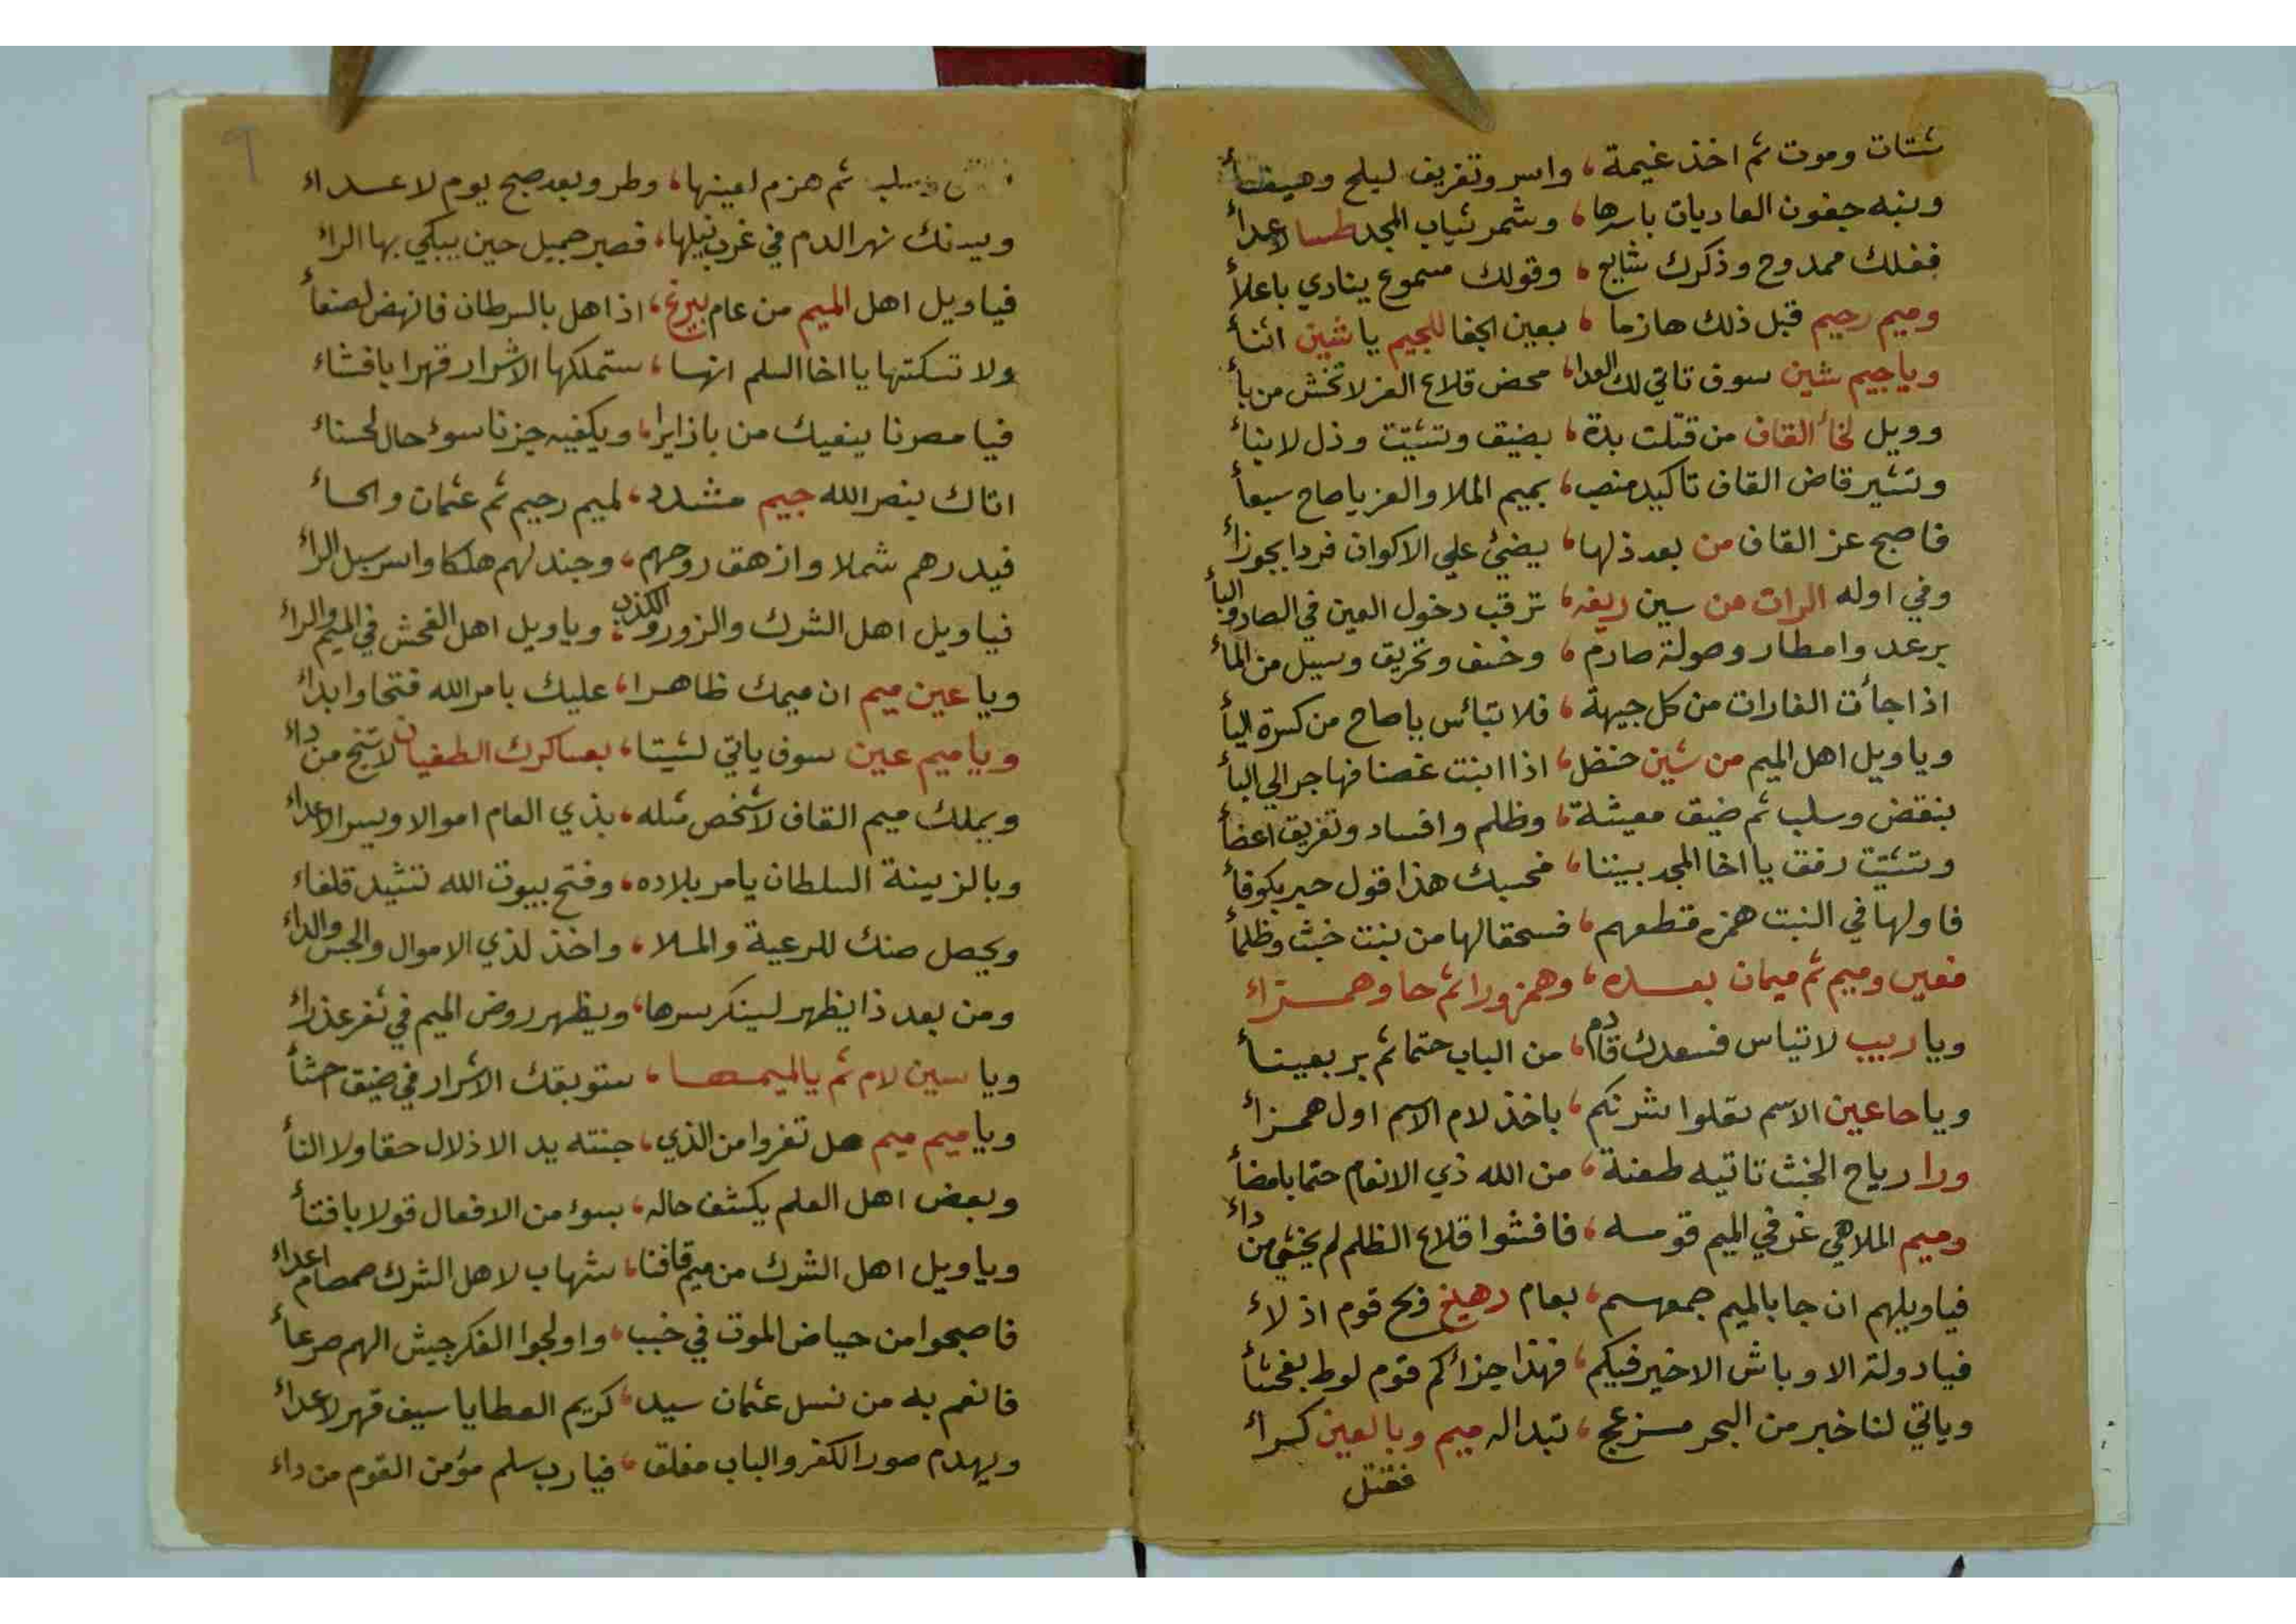 شتات وموت ثم اخذ غيمة، واسر وتفريق ليلح وهيفاأ
وبنه جفون العاديات باسرها، وشمر ثياب المجد طسا لاعداأ
ففلك ممدوح وذكرك شايع، وقولك مسموع ينادي باعلاأ
وميم رجيم قبل ذلك هازما، بعين الجفا للجيم يا شين اثنأ
وياجيم شين سوف تاتي لك العدا، محض قلاع العز لا تخش من بأ
وويل لخأ القاف من قتلت بدة، بضيق وتشتيت وذل لابناأ
وتشير قاض القاف تاكيد منصب، بميم الملا والعز ياصاح سبعأ
فاصبح عز القاف من بعد ذلها، يضئ علي الاكوان فردا بجوزاأ
وفي اوله الرات من سين ريفه، ترقب دخول العين في الصاد والبأ
برعد وامطار وصولة صارم، وخسف وتخريق وسيل من المأ
اذا جأت الغارات من كل جيهة، فلا تبأس ياصاح من كسرة اليأ
وياويل اهل الميم من شين حنضل، اذا ابنت غصنا فهاجر الي البأ
بنقض وسلب ثم ضيق معيشة، وظلم وافساد وتفريق اعضأ
وتشتيت رفق يا اخا المجد بيننا، فحسبك هذا قول حبر بكوفأ
فاولها في النبت همزه قتطعهم، فسحقا لها من بنت خبث وظلمأ
فعين وميم ثم ميمان بعده، وهمز ورا ثم حا وهمزاء
وياريب لاتياس فسعدك قادم، من الباب حتما ثم بر بعينأ
وياحا عين الاسم تقلوا شرنكم، باخذ لام الاسم اول همزاء
ورا رياح الخبث تاتيه طعنة، من الله ذي الانعام حتما بامضأ
وميم الملاهي غز في الميم قومسه، فافشوا قلاع الظلم لم يخشي من داء
فياويلهم ان جا بالميم جمعهم، بعام رهيلخ ويح قوم اذلاء
فيادولة الاوباش الاخير فيكم، فهذا جزأكم قوم لوط بفحشأ
وياتي لنا خبر من البحر مسزعج، تبداله ميم وبالعين كسراء
فقتل
ثم هزم لعينها، وطر وبعد صبح يوم لاعداء
ويبدنك نهر الدم في غرب نيلها، فصبر جميل حين يبكي بها الراء
فياويل اهل الميم من عام بيرغ، اذا هل بالسرطان فانهض لصنعأ
ولا تسكتها يا اخا السلم انها، ستملكها الاشرار قهرا بافشاء
فيا مصرنا ينعيك من باز ايرا، ويكفيه جزنا سوء حال لحسناء
اتاك بنصر الله جيم مشدد، لميم رجيم ثم عثمان والحاء
فيدرهم شملا وازهق روحهم، وجند لهم هلكا واسر سبل الراء
فياويل اهل الشرك والزور والكذب، وياويل اهل الفحش في الميم والراء
ويا عين ميم ان ميمك ظاهرا، عليك بامر الله فتحا وابداء
وياميم عين سوف ياتي لشيتا، بعساكرك الطغيان لا تنج من داء
ويملك ميم القاف لا شخص مثله، بذي العام اموالا ويسر الاعداء
وبالزينة السلطان يامر بلاده، وفتح بيوت الله تشيد قلفاء
ويحصل ضنك للرعية والملا، واخذ لذي الاموال والحبس والداء
ومن بعد ذا يظهر لسينكر سرها، ويظهر روض الميم في ثغر عذراء
ويا سين لام ثم يالميمها، ستوبقك الاشرار في ضيق حشأ
وياميم ميم هل تفروا من الذي، جنته يد الاذلال حقا ولا النأ
وبعض اهل العلم يكشف حاله، بسوء من الافعال قولا بافتأ
وياويل اهل الشرك من ميم قافنا، شهاب لاهل الشرك صمصام اعداء
فاصبحوا من حياض الموت في خبب، واولجوا الفكر جيش الهم صرعاء
فانعم به من نسل عثمان سيد، كريم العطايا سيف قهر لاعداء
ويهدم صور الكفر والباب مغلق، فيارب سلم مؤمن القوم من داء